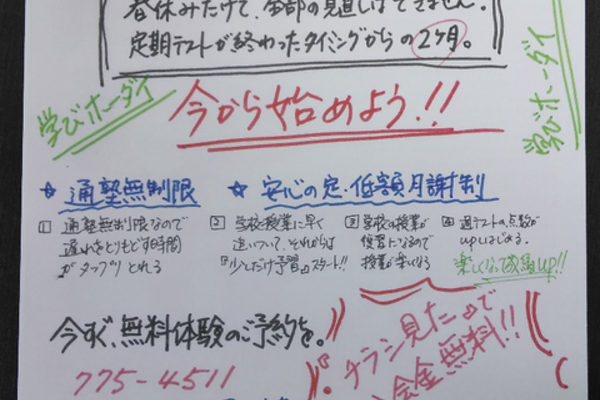 春休みだけで、全部の見直しはできません。
定期テストが終わったタイミングからの2ヶ月。
学びホーダイ
今から始めよう!!
学びホーダイ
☆ 通塾無制限
☆ 安心の定・低額月謝制
1 通塾無制限なので
遅れをとりもどす時間
がタップリとれる
2 学校の授業に早く
追いついて、それからは
『少しだけ予習』スタート!!
3 学校の授業が
復習になるので
授業が楽しくなる
4 週テストの点数が
upしはじめる。
楽しくなって成績up!!
今すぐ、無料体験のご予約を。
775-4511
チラシ見たので
会金無料!!